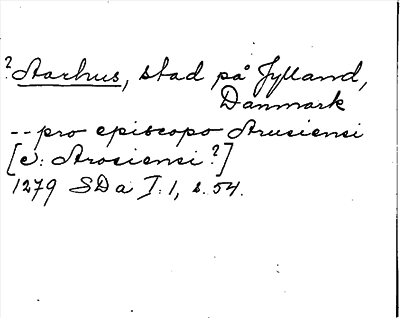 ? Aarhus, stad på Jylland,
Danmark
-- pro episcopo Arusiensi
[ɔ: Arosiensi?]
1279 SDa I:1, s. 54.